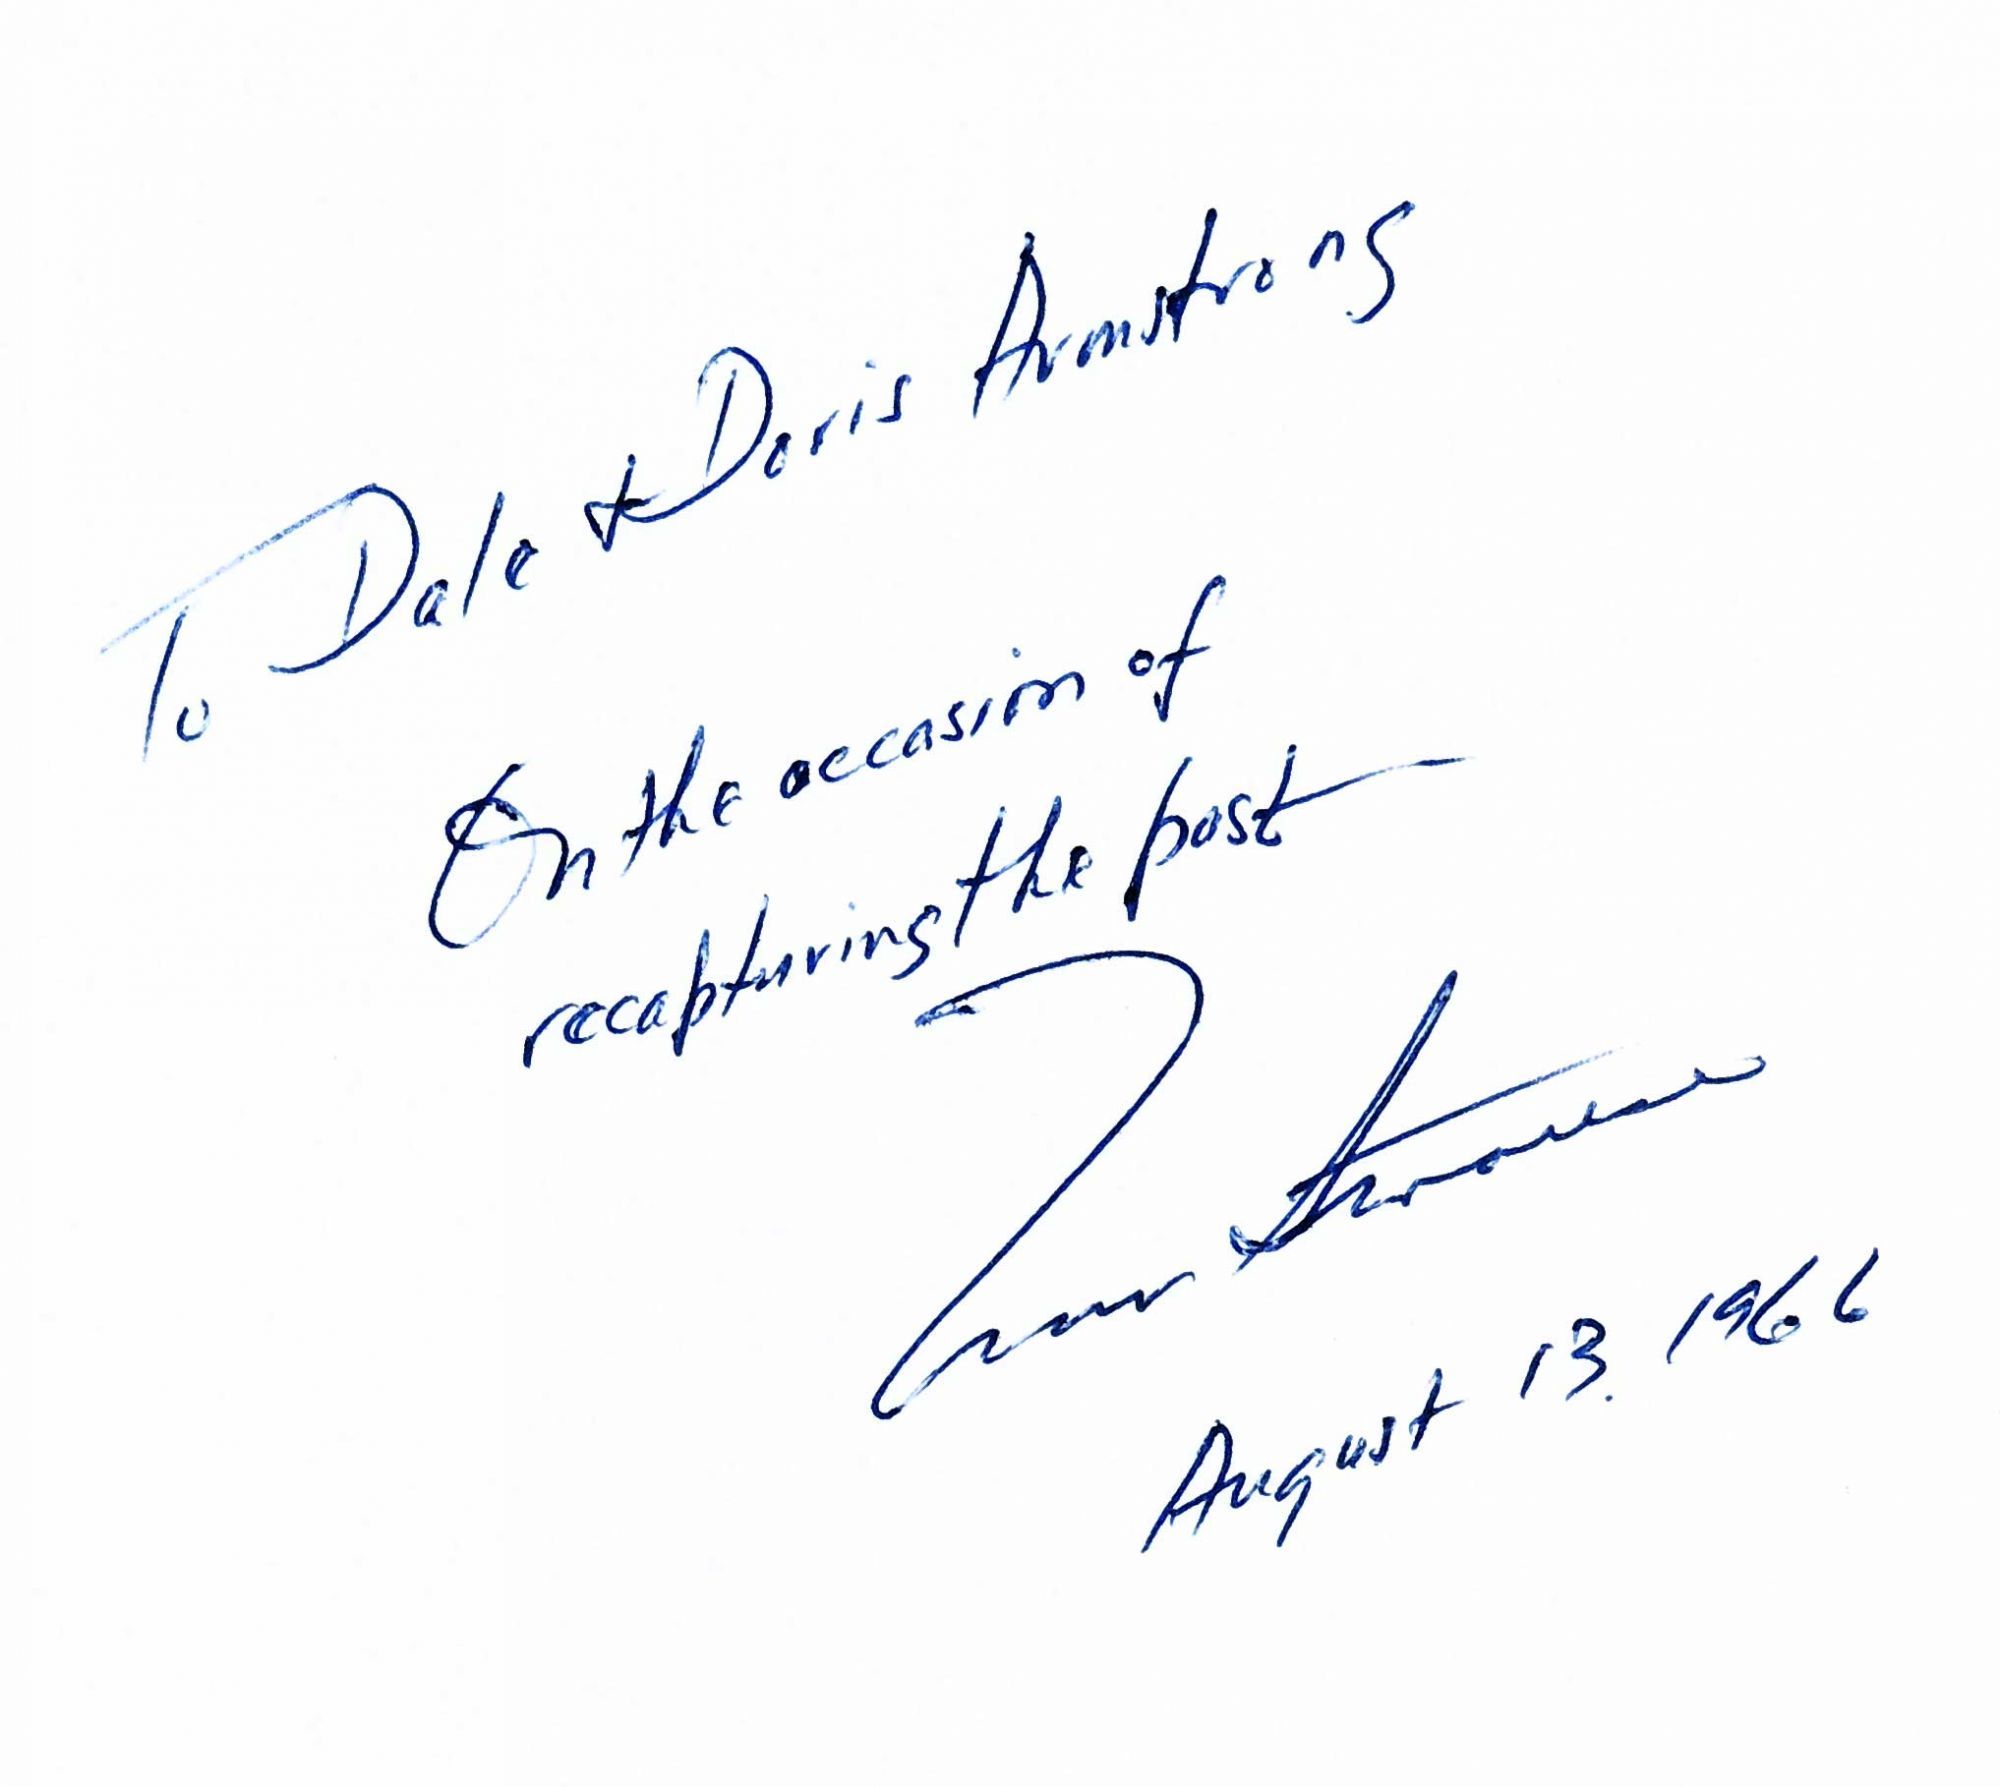 To Dale & Doris Armstrong
On the occasion of
recapturing the past
August 13. 1966